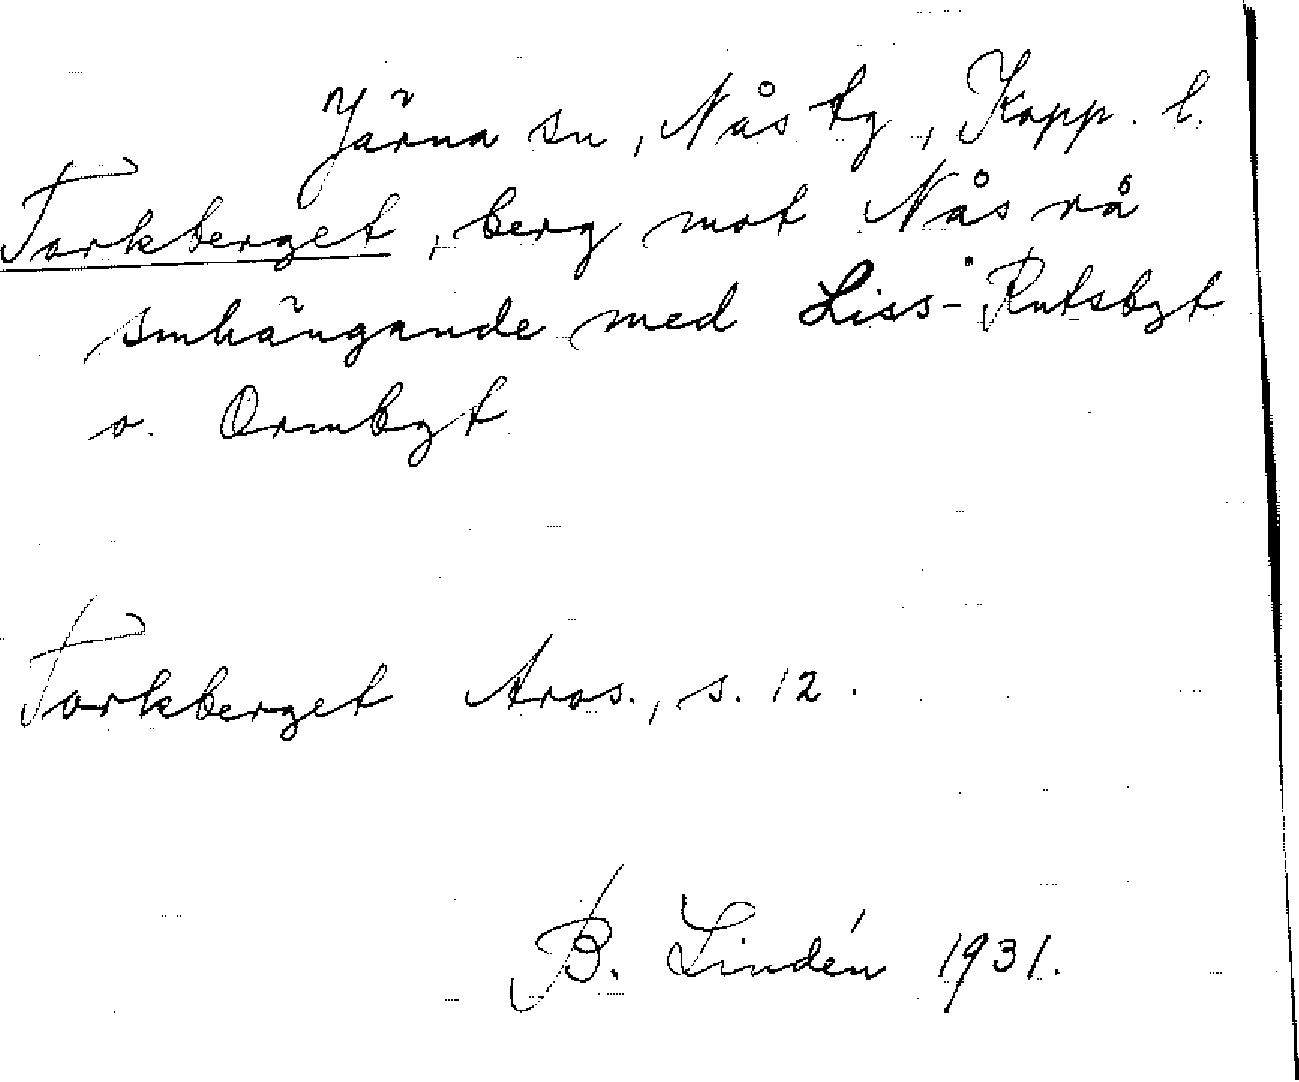 Järna sn, Nås tg, Kopp. l.
Torkberget, berg mot Nås rå
smhängande med Liss-Rutsbgt
o. Ormbgt
Torkberget Aros., s. 12.
B. Lindén 1931.